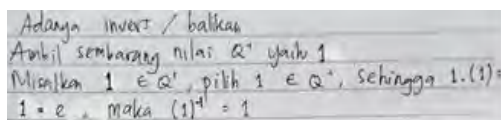 Adanya invers / balikan
Ambil sembarang nilai Q' yaitu 1
Misalkan 1 ∈ Q', pilih 1 ∈ Q', sehingga 1.(1) =
1 = e, maka (1)⁻¹ = 1